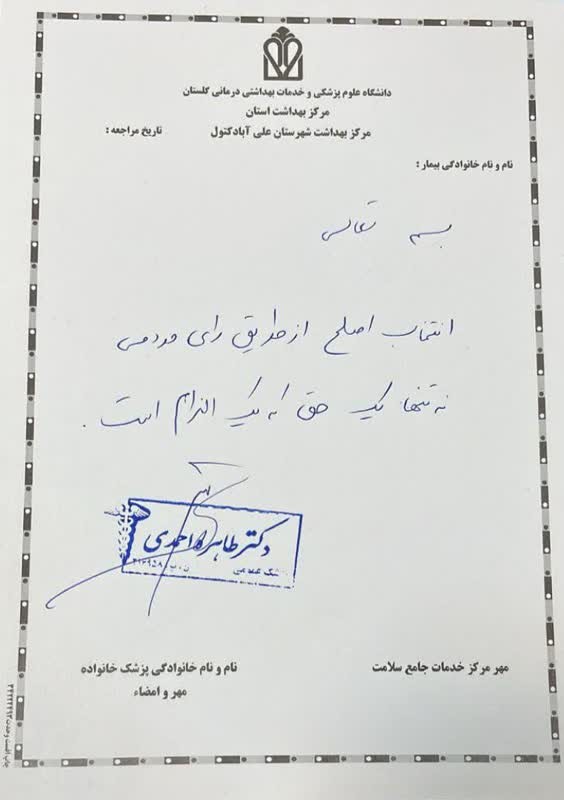 دانشگاه علوم پزشکی و خدمات بهداشتی درمانی گلستان
مرکز بهداشت استان
مرکز بهداشت شهرستان علی آبادکتول
تاریخ مراجعه :
نام و نام خانوادگی بیمار :
بسمه تعالی
انتخاب اصلح از طریق رای مردمی
نه تنها یک حق که یک الزام است .
دکتر طاهره احمدی
پزشک عمومی
مهر مرکز خدمات جامع سلامت
نام و نام خانوادگی پزشک خانواده
مهر و امضاء